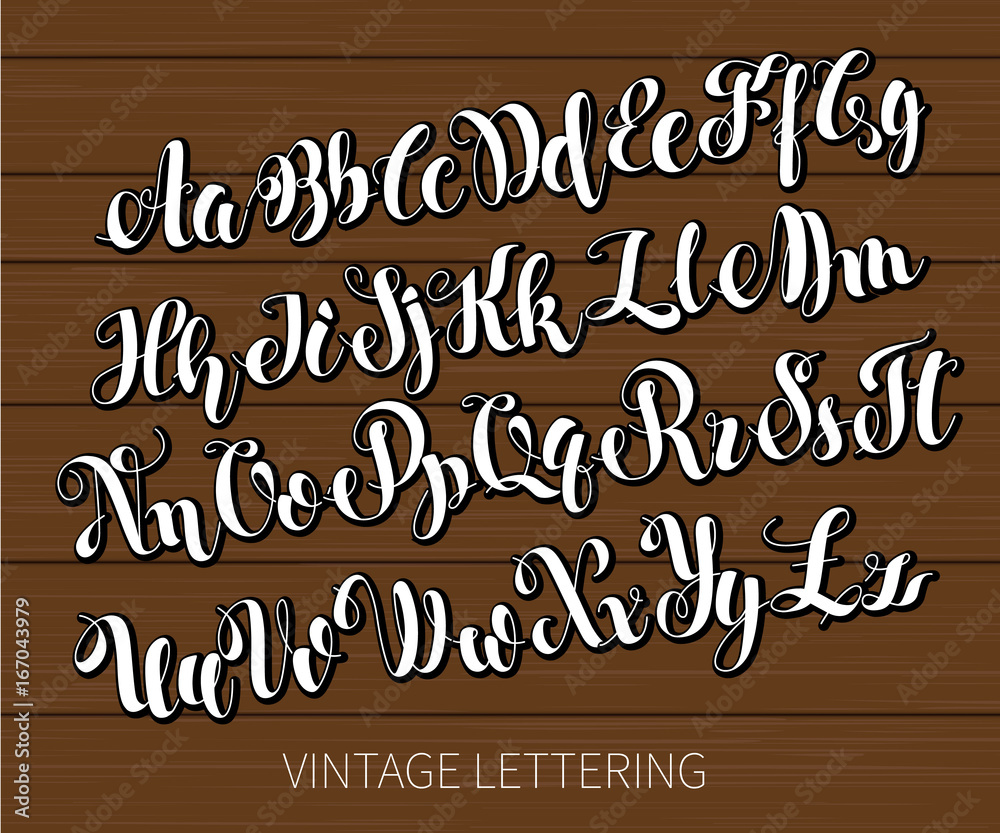 Aa Bb Cc Dd Ee Ff Gg
Hh Ii Jj Kk Ll Mm
Nn Oo Pp Qq Rr Ss Tt
Uu Vv Ww Xx Yy Zz
VINTAGE LETTERING
Adobe Stock | #167043979